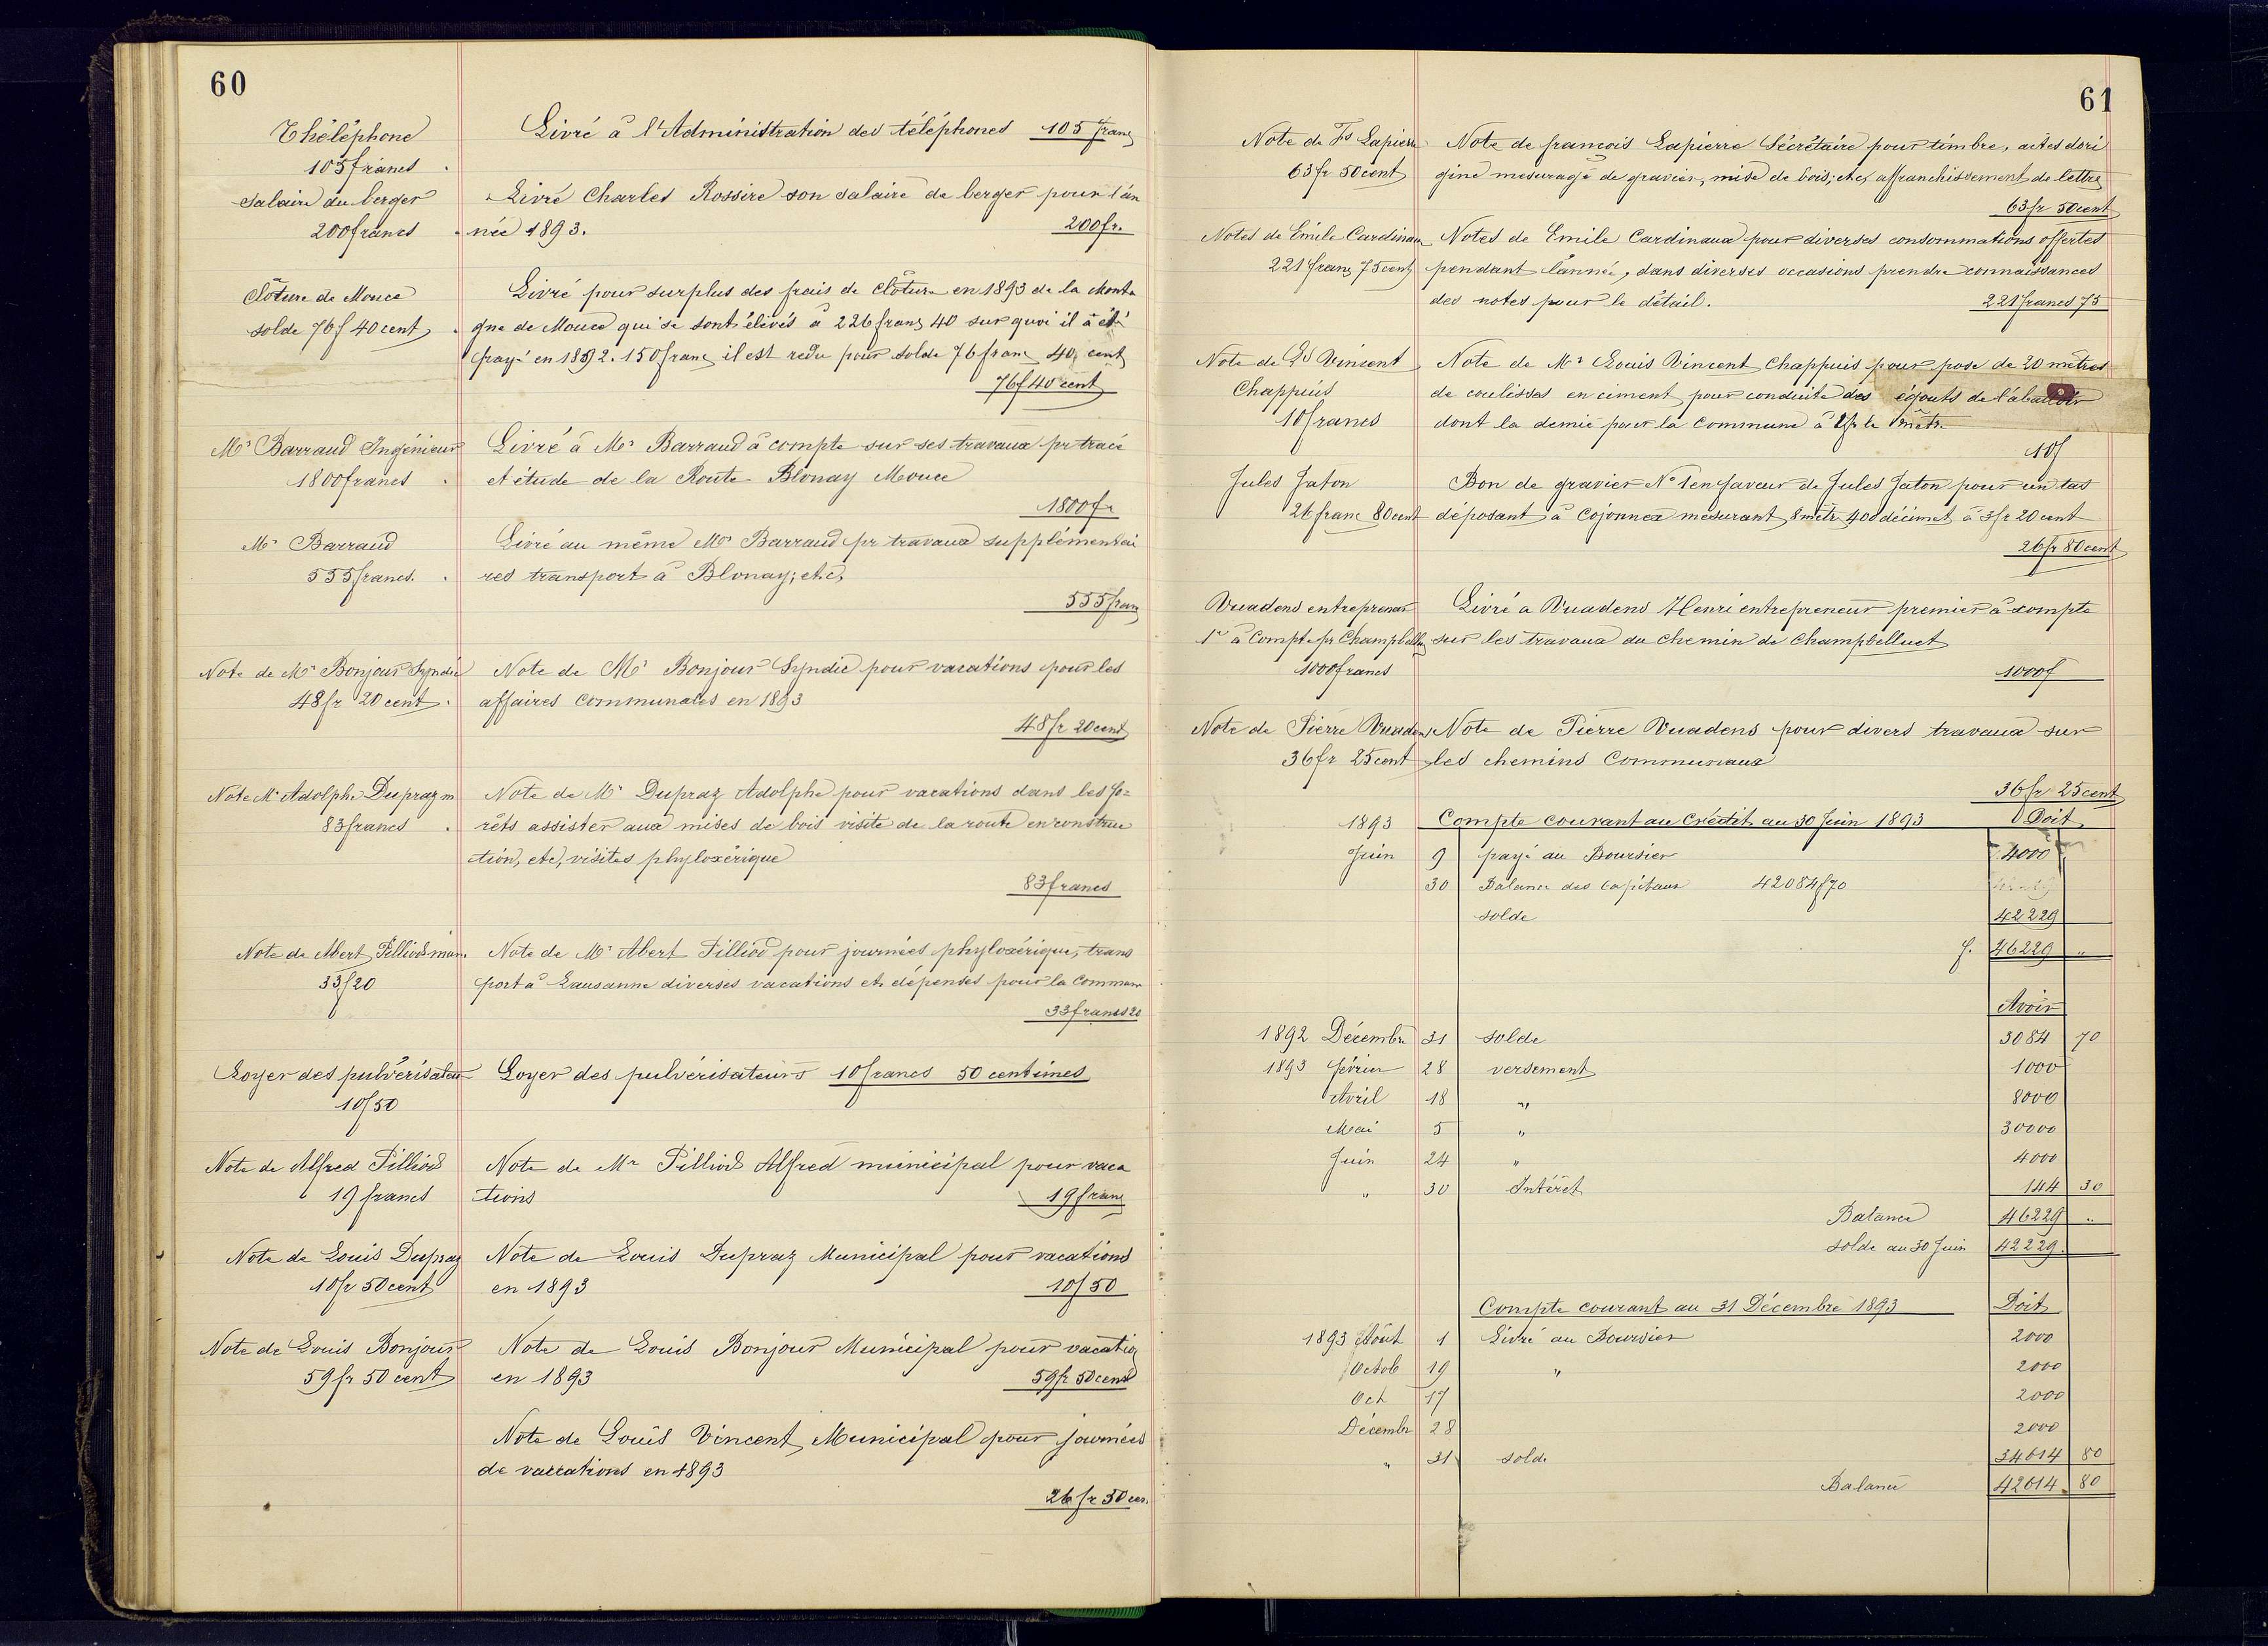 60
Théléphone
105 francs
Livré à l'Administration des téléphones 105 franc
Salaire du berger
200 francs
Livré Charles Rossire son salaire de berger pour l'an
née 1893.
200 fr.
Clôture de Mouce
solde 76 f 40 cent
Livré pour surplus des frais de clôture en 1893 de la Monta
gne de Mouce qui se sont élevés à 226 franc 40 sur quoi il a été
payé en 1892. 150 franc il est redu pour solde 76 franc 40 cent
76 f 40 cent
Mr Barraud Ingénieur
1800 francs
Livré à Mr Barraud à compte sur ses travaux pr tracé
et étude de la Route Blonay Mouce
1800 fr
Mr Barraud
555 francs.
Livré au même Mr Barraud pr travaux supplémentai
res transport à Blonay, etc,
555 franc
Note de Mr Bonjour Syndic
48 fr 20 cent
Note de Mr Bonjour Syndic pour vacations pour les
affaires communales en 1893
48 fr 20 cent
Note Mr Adolphe Dupraz m
83 francs
Note de Mr Dupraz Adolphe pour vacations dans les fo=
rêts assister aux mises de bois visite de la route en construc
tion, etc, visites phyloxérique
83 francs
Note de Abert Pilliod mun.
33 f 20
Note de Mr Abert Pilliod pour journées phyloxérique, trans
port à Lausanne diverses vacations et dépenses pour la Commun
33 francs 20
Loyer des pulvérisateur
10 f 50
Loyer des pulvérisateurs 10 francs 50 centimes
Note de Alfred Pilliod
19 francs
Note de Mr Pilliod Alfred municipal pour vaca
tions
19 franc
Note de Louis Dupraz
10 fr 50 cent
Note de Louis Dupraz Municipal pour vacations
en 1893
10 f 50
Note de Louis Bonjour
59 fr 50 cent
Note de Louis Bonjour Municipal pour vacatio
en 1893
59 fr 50 cent
Note de Louis Vincent Municipal pour journées
de vaccations en 1893
26 fr 50 cen.
61
Note de Fs Lapierre
63 fr 50 cent
Note de francois Lapierre Sécrétaire pour timbre, actes dori
gine mesurage de gravier, mise de bois, etc, affranchissement de lettre
63 fr 50 cent
Notes de Emile Cardinau
221 franc 75 cent
Notes de Emile Cardinaux pour diverses consommations offertes
pendant l'année, dans diverses occasions prendre connaissances
des notes pour le détail. 221 francs 75
Note de Ls Vincent
Chappuis
10 francs
Note de Mr Louis Vincent Chappuis pour pose de 20 mètres
de coulisses en ciment pour conduite des égouts de l'abattoir
dont la demie pour la Commune à 1 fr le mètr
10 f
Jules Jaton
26 franc 80 cent
Bon de gravier No 1 en faveur de Jules Jaton pour un tas
déposant à Cojonnex mesurant 8 mètr 400 décimet à 3 fr 20 cent
26 fr 80 cent
Vuadens entreprenur
1r à compte pr Champbellu
1000 francs
Livré a Vuadens Henri entrepreneur premier à compte
sur les travaux du chemin de Champbelluet
1000 f
Note de Pierre Vuadens
36 fr 25 cent
Note de Pierre Vuadens pour divers travaux sur
les chemins Communaux
36 fr 25 cent
1893 Compte courant au Crédit au 30 Juin 1893 Doit
Juin 9 payé au Boursier 4000
30 Balance des Capitaux 42084 f 70
solde 42229
f. 46229 "
Avoir
1892 Décembr 31 solde 3084 70
1893 février 28 versement 1000
Avril 18 " 8000
Mai 5 " 30000
Juin 24 " 4000
" 30 Intérêt 144 30
Balance 46229 "
solde au 30 Juin 42229
Compte courant au 31 Décembre 1893 Doit
1893 Août 1 Livré au Boursier 2000
Octob 19 " 2000
Oct 17 2000
Décembr 28 2000
" 31 solde 34614 80
Balance 42614 80